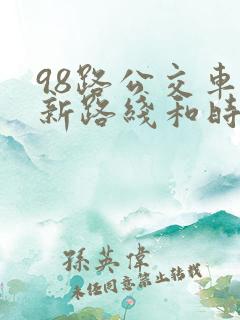 98路公交车
新路綫和時
孫英偉
未经同意禁止转载